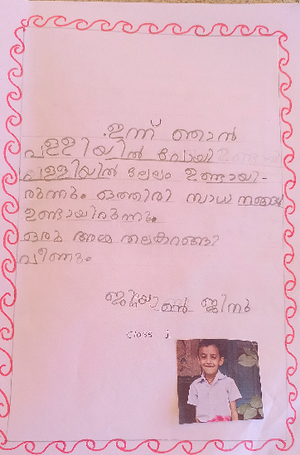 ഇന്ന് ഞാൻ
പള്ളിയിൽ പോയി
പള്ളിയിൽ ലേലം ഉണ്ടായി-
രുന്നു. ഒത്തിരി സാധനങ്ങൾ
ഉണ്ടായിരുന്നു.
ഒരു അമ്മ തലകറങ്ങി
വീണു.
ജിനു
class 1